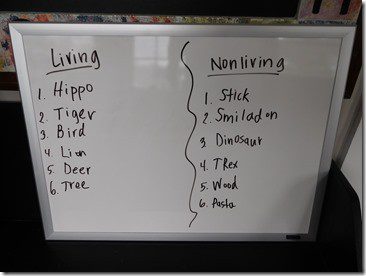 Living
1. Hippo
2. Tiger
3. Bird
4. Lion
5. Deer
6. Tree
Nonliving
1. Stick
2. Smiladon
3. Dinosaur
4. TRex
5. Wood
6. Pasta